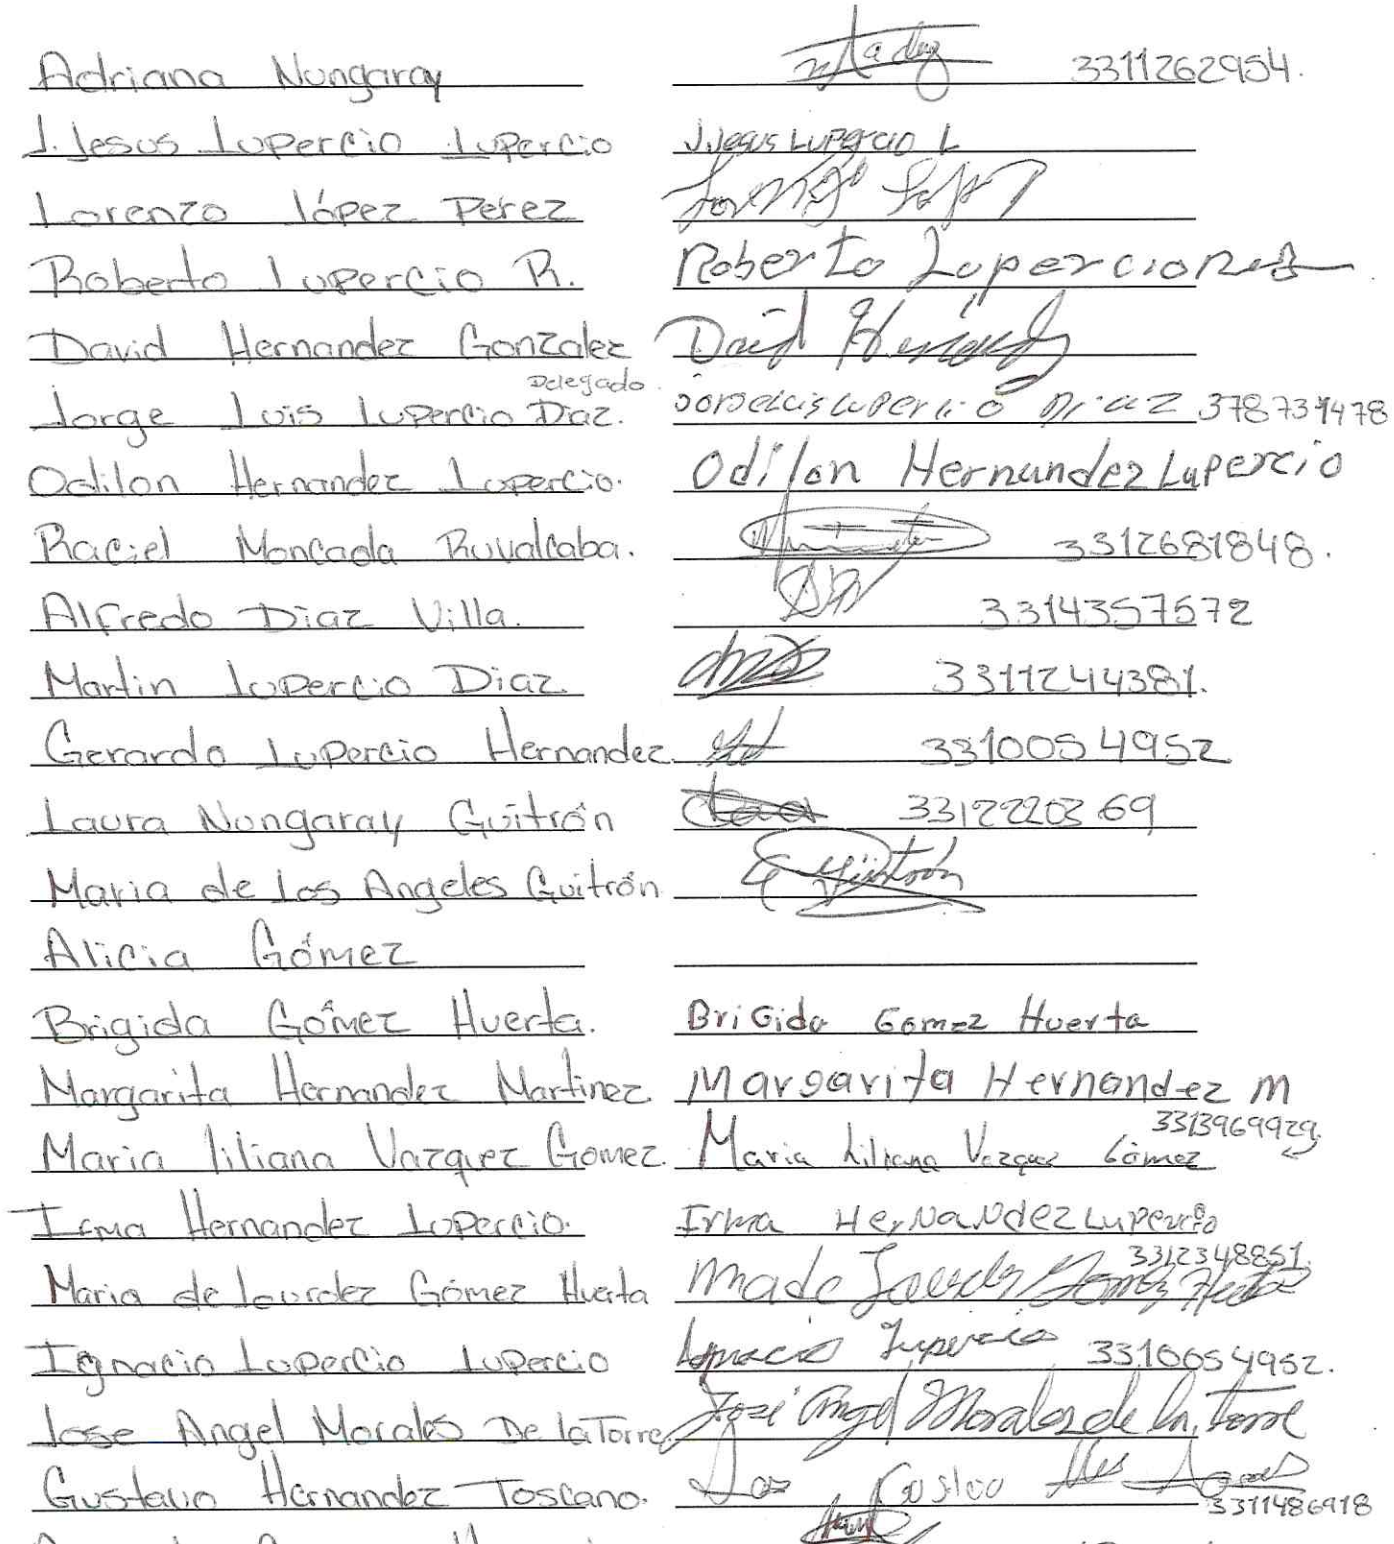 Adriana Nungaray 3311262954.
J. Jesus Lupercio Lupercio J. Jesus Lupercio L
Lorenzo López Pérez
Roberto Lupercio R. Roberto Lupercio
David Hernandez Gonzalez David
Delegado
Jorge Luis Lupercio Diaz. Jorge Luis Lupercio Diaz
Odilon Hernandez Lupercio. Odilon Hernandez Lupercio
Raciel Moncada Ruvalcaba. 3312681848.
Alfredo Diaz Villa. 3314357572
Martin Lupercio Diaz. 3311244381.
Gerardo Lupercio Hernandez 3310054952
Laura Nungaray Guitrón 3312220369
Maria de los Angeles Guitrón Guitrón
Alicia Gómez
Brigida Gómez Huerta. Brigida Gomez Huerta
Margarita Hernandez Martinez. Margarita Hernandez M
3313969929
Maria liliana Vazquez Gomez. Maria Liliana Vazquez Gómez
Irma Hernandez Lupercio. Irma Hernandez Lupercio
3312348851.
Maria de Lourdez Gómez Huerta Ma de Lourdes Gomez
Ignacio Lupercio Lupercio Ignacio Lupercio 3310054952.
Jose Angel Morales De la Torre José Angel Morales de la Torre
Gustavo Hernandez Toscano.
3311486918